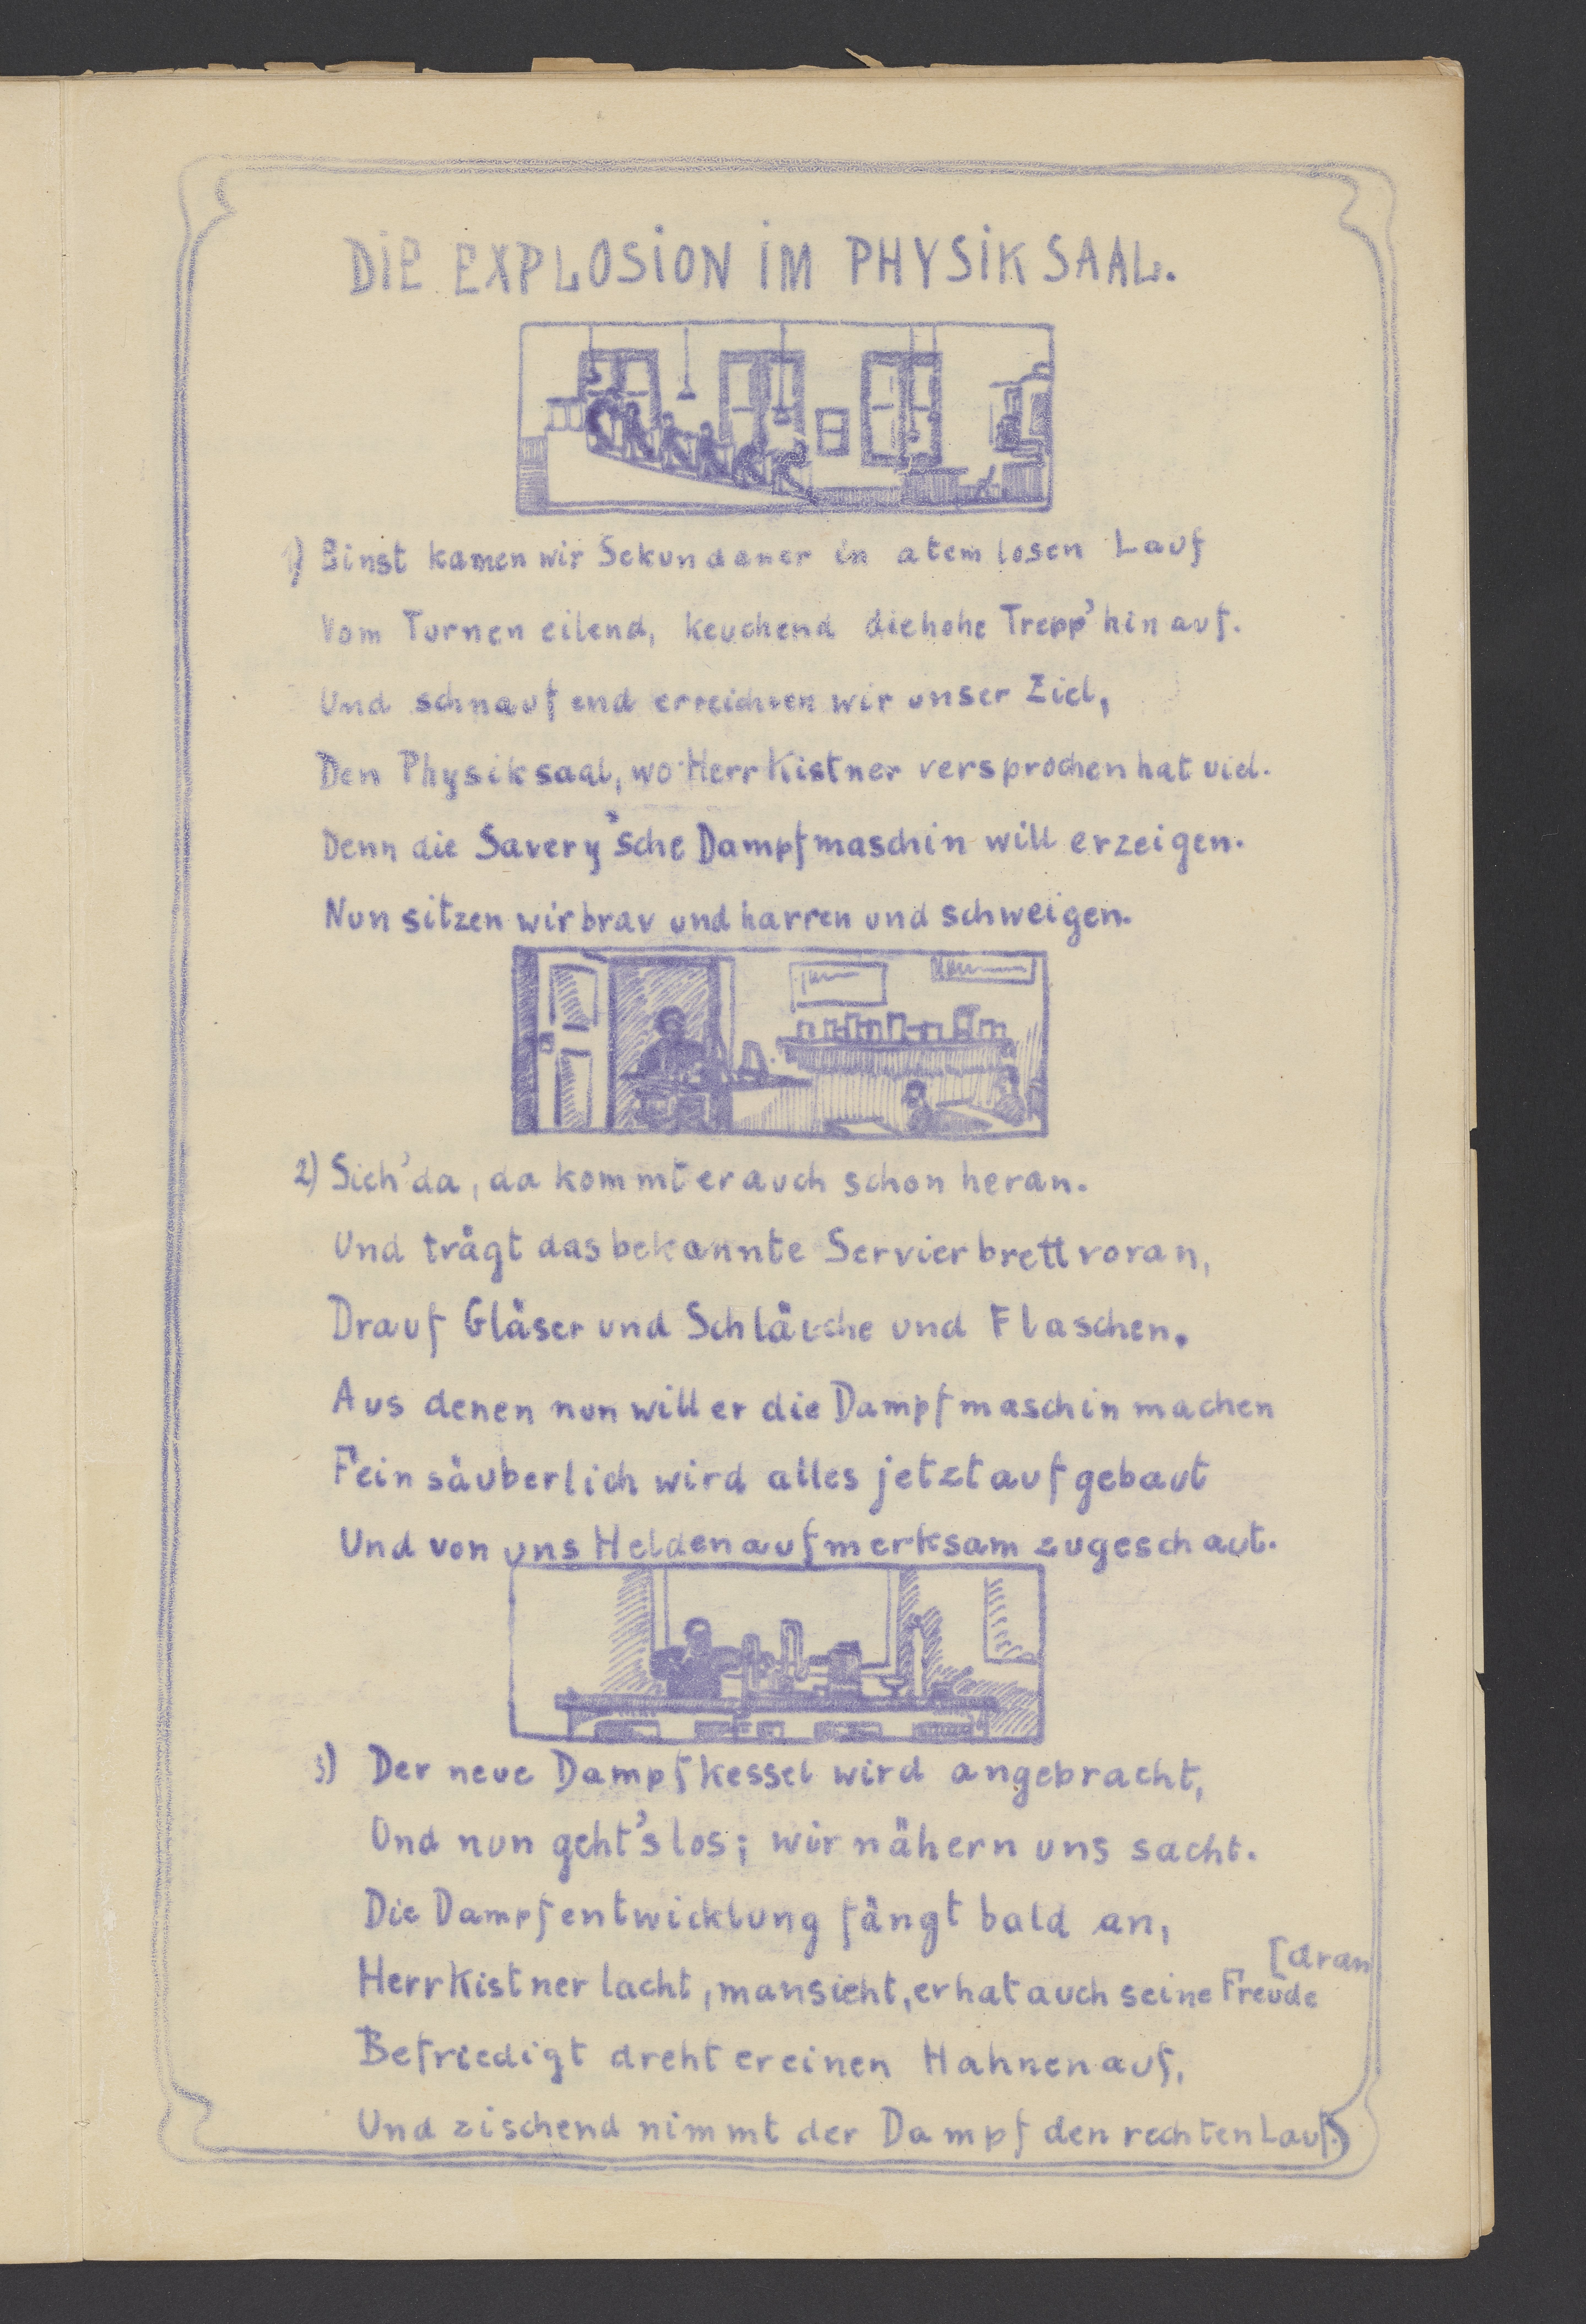 DIE EXPLOSION IM PHYSIKSAAL.
1) Einst kamen wir Sekundaner in atemlosen Lauf
Vom Turnen eilend, keuchend die hohe Trepp' hinauf.
Und schnaufend erreichen wir unser Ziel,
Den Physiksaal, wo Herr Kistner versprochen hat viel.
Denn die Savery'sche Dampfmaschin will er zeigen.
Nun sitzen wir brav und harren und schweigen.
2) Sieh' da, da kommt er auch schon heran.
Und trägt das bekannte Servierbrett voran,
Drauf Gläser und Schläuche und Flaschen.
Aus denen nun will er die Dampfmaschin machen
Fein säuberlich wird alles jetzt aufgebaut
Und von uns Helden aufmerksam zugeschaut.
3) Der neue Dampfkessel wird angebracht,
Und nun geht's los; wir nähern uns sacht.
Die Dampfentwicklung fängt bald an,
[dran
Herr Kistner lacht, man sieht, er hat auch seine Freude
Befriedigt dreht er einen Hahnen auf,
Und zischend nimmt der Dampf den rechten Lauf.